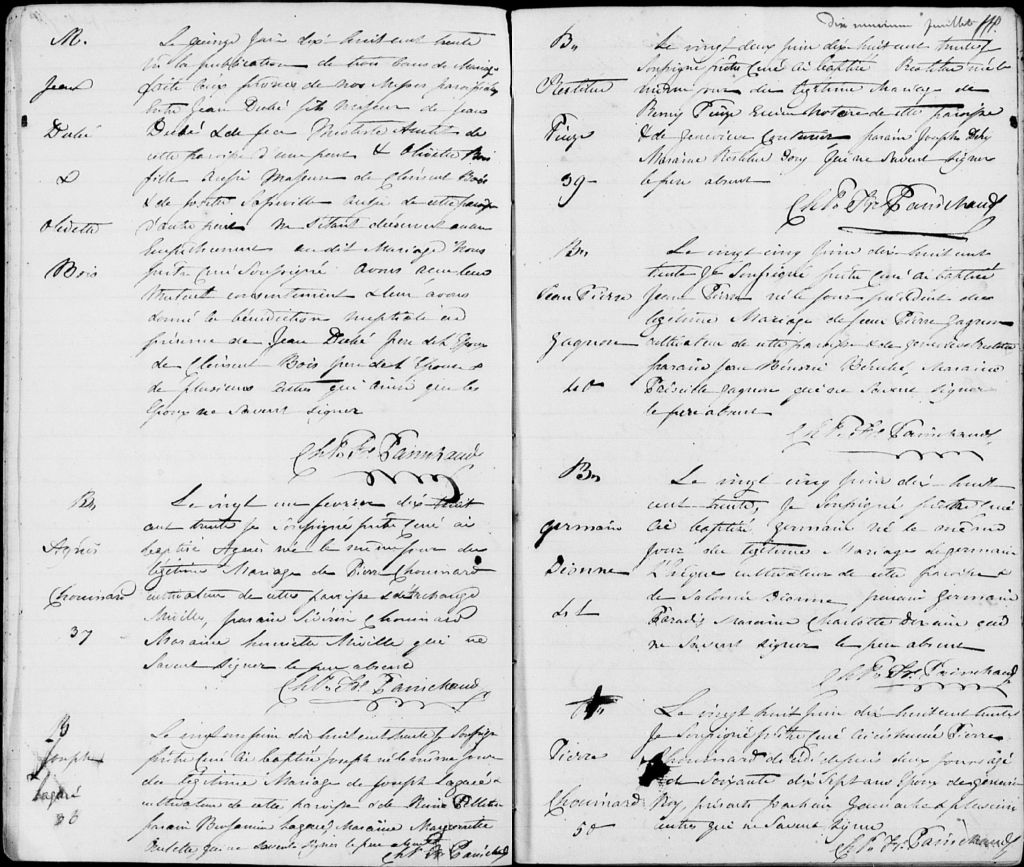 M.
Jean
Dubé
&
Olivette
Bois
Le quinze Juin dix huit cent trente
vu la publication de trois bans de Mariage
faite aux prones de nos Messes paroissiales
entre Jean Dubé fils Majeur de Jean
Dubé & de feue
cette paroisse d'une part & Olivette Bois
fille aussi Majeure de Clément Bois
& de aussi de cette paroisse
d'autre part ne s'étant découvert aucun
Empêchement au dit Mariage Nous
prêtre Curé Soussigné avons reçu leur
Mutuel consentement & leur avons
donné la bénédiction nuptiale en
présence de Jean Dubé père de l'Epoux
de Clément Bois père de l'Epouse &
de plusieurs autres qui ainsi que les
Epoux ne Savent signer
Ch. Fs. Painchaud
B.
Agnès
Chouinard
37
Le vingt un fevrier dix huit
cent trente je Soussigné prêtre Curé ai
baptisé Agnès née le même jour du
légitime Mariage de Pierre Chouinard
cultivateur de cette paroisse & d'Archange
Miville, parain Chouinard
Maraine Miville qui ne
Savent signer le père absent
Ch. Fs. Painchaud
B
Joseph
Lagacé
38
Le vingt un juin dix huit cent trente Je Soussigné
prêtre Curé ai baptisé Joseph né le même jour
du légitime Mariage de Joseph Lagacé
cultivateur de cette paroisse & de Pelletier
parain Benjamin Lagacé, Maraine Marguerite
qui ne Savent signer le père absent
Ch. Fs. Painchaud
Juillet
B.
Restitue
Pinze
39
Le vingt deux juin dix huit cent trente Je
Soussigné prêtre Curé ai baptisé Restitue né le
même jour du légitime Mariage de
Rémi Notaire de cette paroisse
& de Geneviève Couturier parain Joseph
Maraine Qui ne Savent signer
le père absent
Ch. Fs. Painchaud
B.
Jean Pierre
Gagnon
40
Le vingt cinq Juin dix huit cent
trente Je Soussigné prêtre Curé ai baptisé
Jean Pierre né le jour précédent du
légitime Mariage de Jean Pierre Gagnon
cultivateur de cette paroisse & de Geneviève
parain Jean Bérubé, Maraine
Priscille Gagnon qui ne Savent signer
le père absent
Ch. Fs. Painchaud
B.
Germain
Dionne
41
Le vingt cinq Juin dix huit
cent trente, Je Soussigné prêtre Curé
ai baptisé Germain né le même
jour du légitime Mariage de Germain
cultivateur de cette paroisse &
de Salomée Dionne, parain Germain
Paradis Maraine Charlotte qui
ne Savent signer le père absent
Ch. Fs. Painchaud
Pierre
Chouinard
50
Le vingt huit Juin dix huit cent trente
Je Soussigné prêtre Curé ai inhumé Pierre
Chouinard décédé depuis deux jours agé
de Soixante dix Sept ans Epoux de Geneviève
Roy, présents & plusieurs
autres qui ne Savent Signer
Ch. Fs. Painchaud